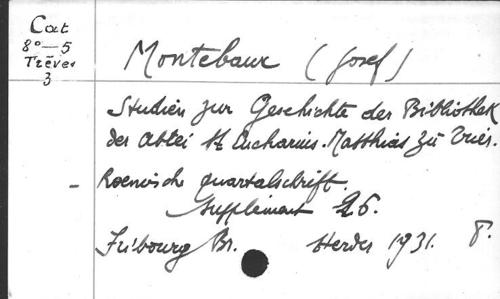 Cat
8°—5
Trèves
3
Montebaur (Josef)
Studien zur Geschichte der Bibliothek
der Abtei St Eucharius-Matthias zu Trier.
- Roemische quartalschrift.
Supplement 26.
Fribourg Br. Herder 1931. 8°.